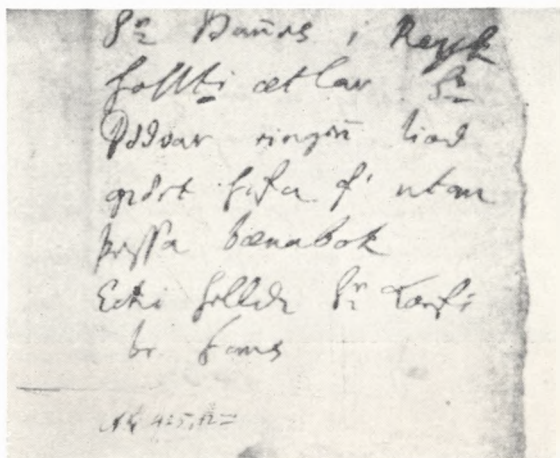 Sr Hañes i Reyk
hollti ætlar Sr
Oddvar eingiñ liod
giört hafa f' utan
þessa bænabok
Ecki helldr Sr Torfi
br hans
AM 425, 12º